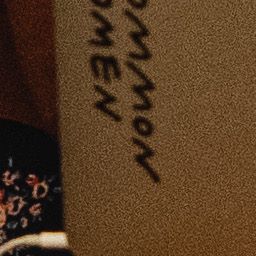 OMMON
OMEN